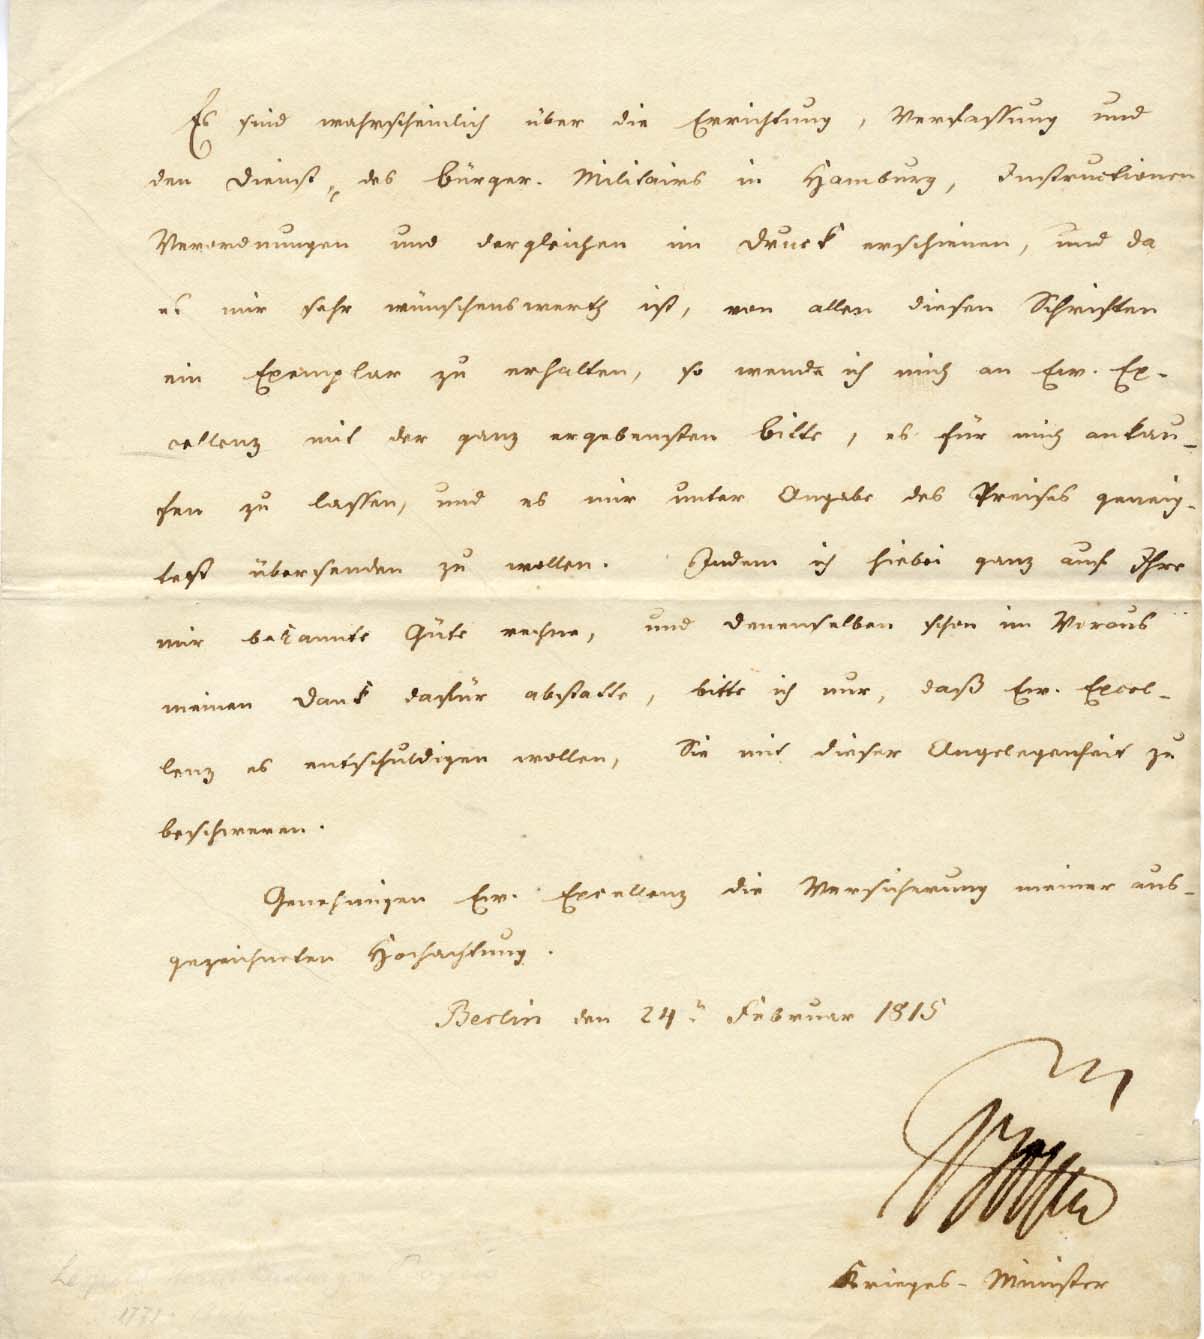 Es sind wahrscheinlich über die Errichtung, Verfassung und
den Dienst des Bürger-Militairs in Hamburg, Instructionen
Verordnungen und dergleichen im Druck erschienen, und da
es mir sehr wünschenswerth ist, von allen diesen Schriften
ein Exemplar zu erhalten, so wende ich mich an Ew. Ex-
cellenz mit der ganz ergebensten Bitte, es für mich ankau-
fen zu lassen, und es mir unter Angabe des Preises geneig-
test übersenden zu wollen. Indem ich hiebei ganz auf Ihre
mir bekannte Güte rechne, und denenselben schon im Voraus
meinen Dank dafür abstatte, bitte ich nur, daß Ew. Excel-
lenz es entschuldigen wollen, Sie mit dieser Angelegenheit zu
beschweren.
Genehmigen Ew. Excellenz die Versicherung meiner aus-
gezeichneten Hochachtung.
Berlin den 24n Februar 1815
Krieges-Minister